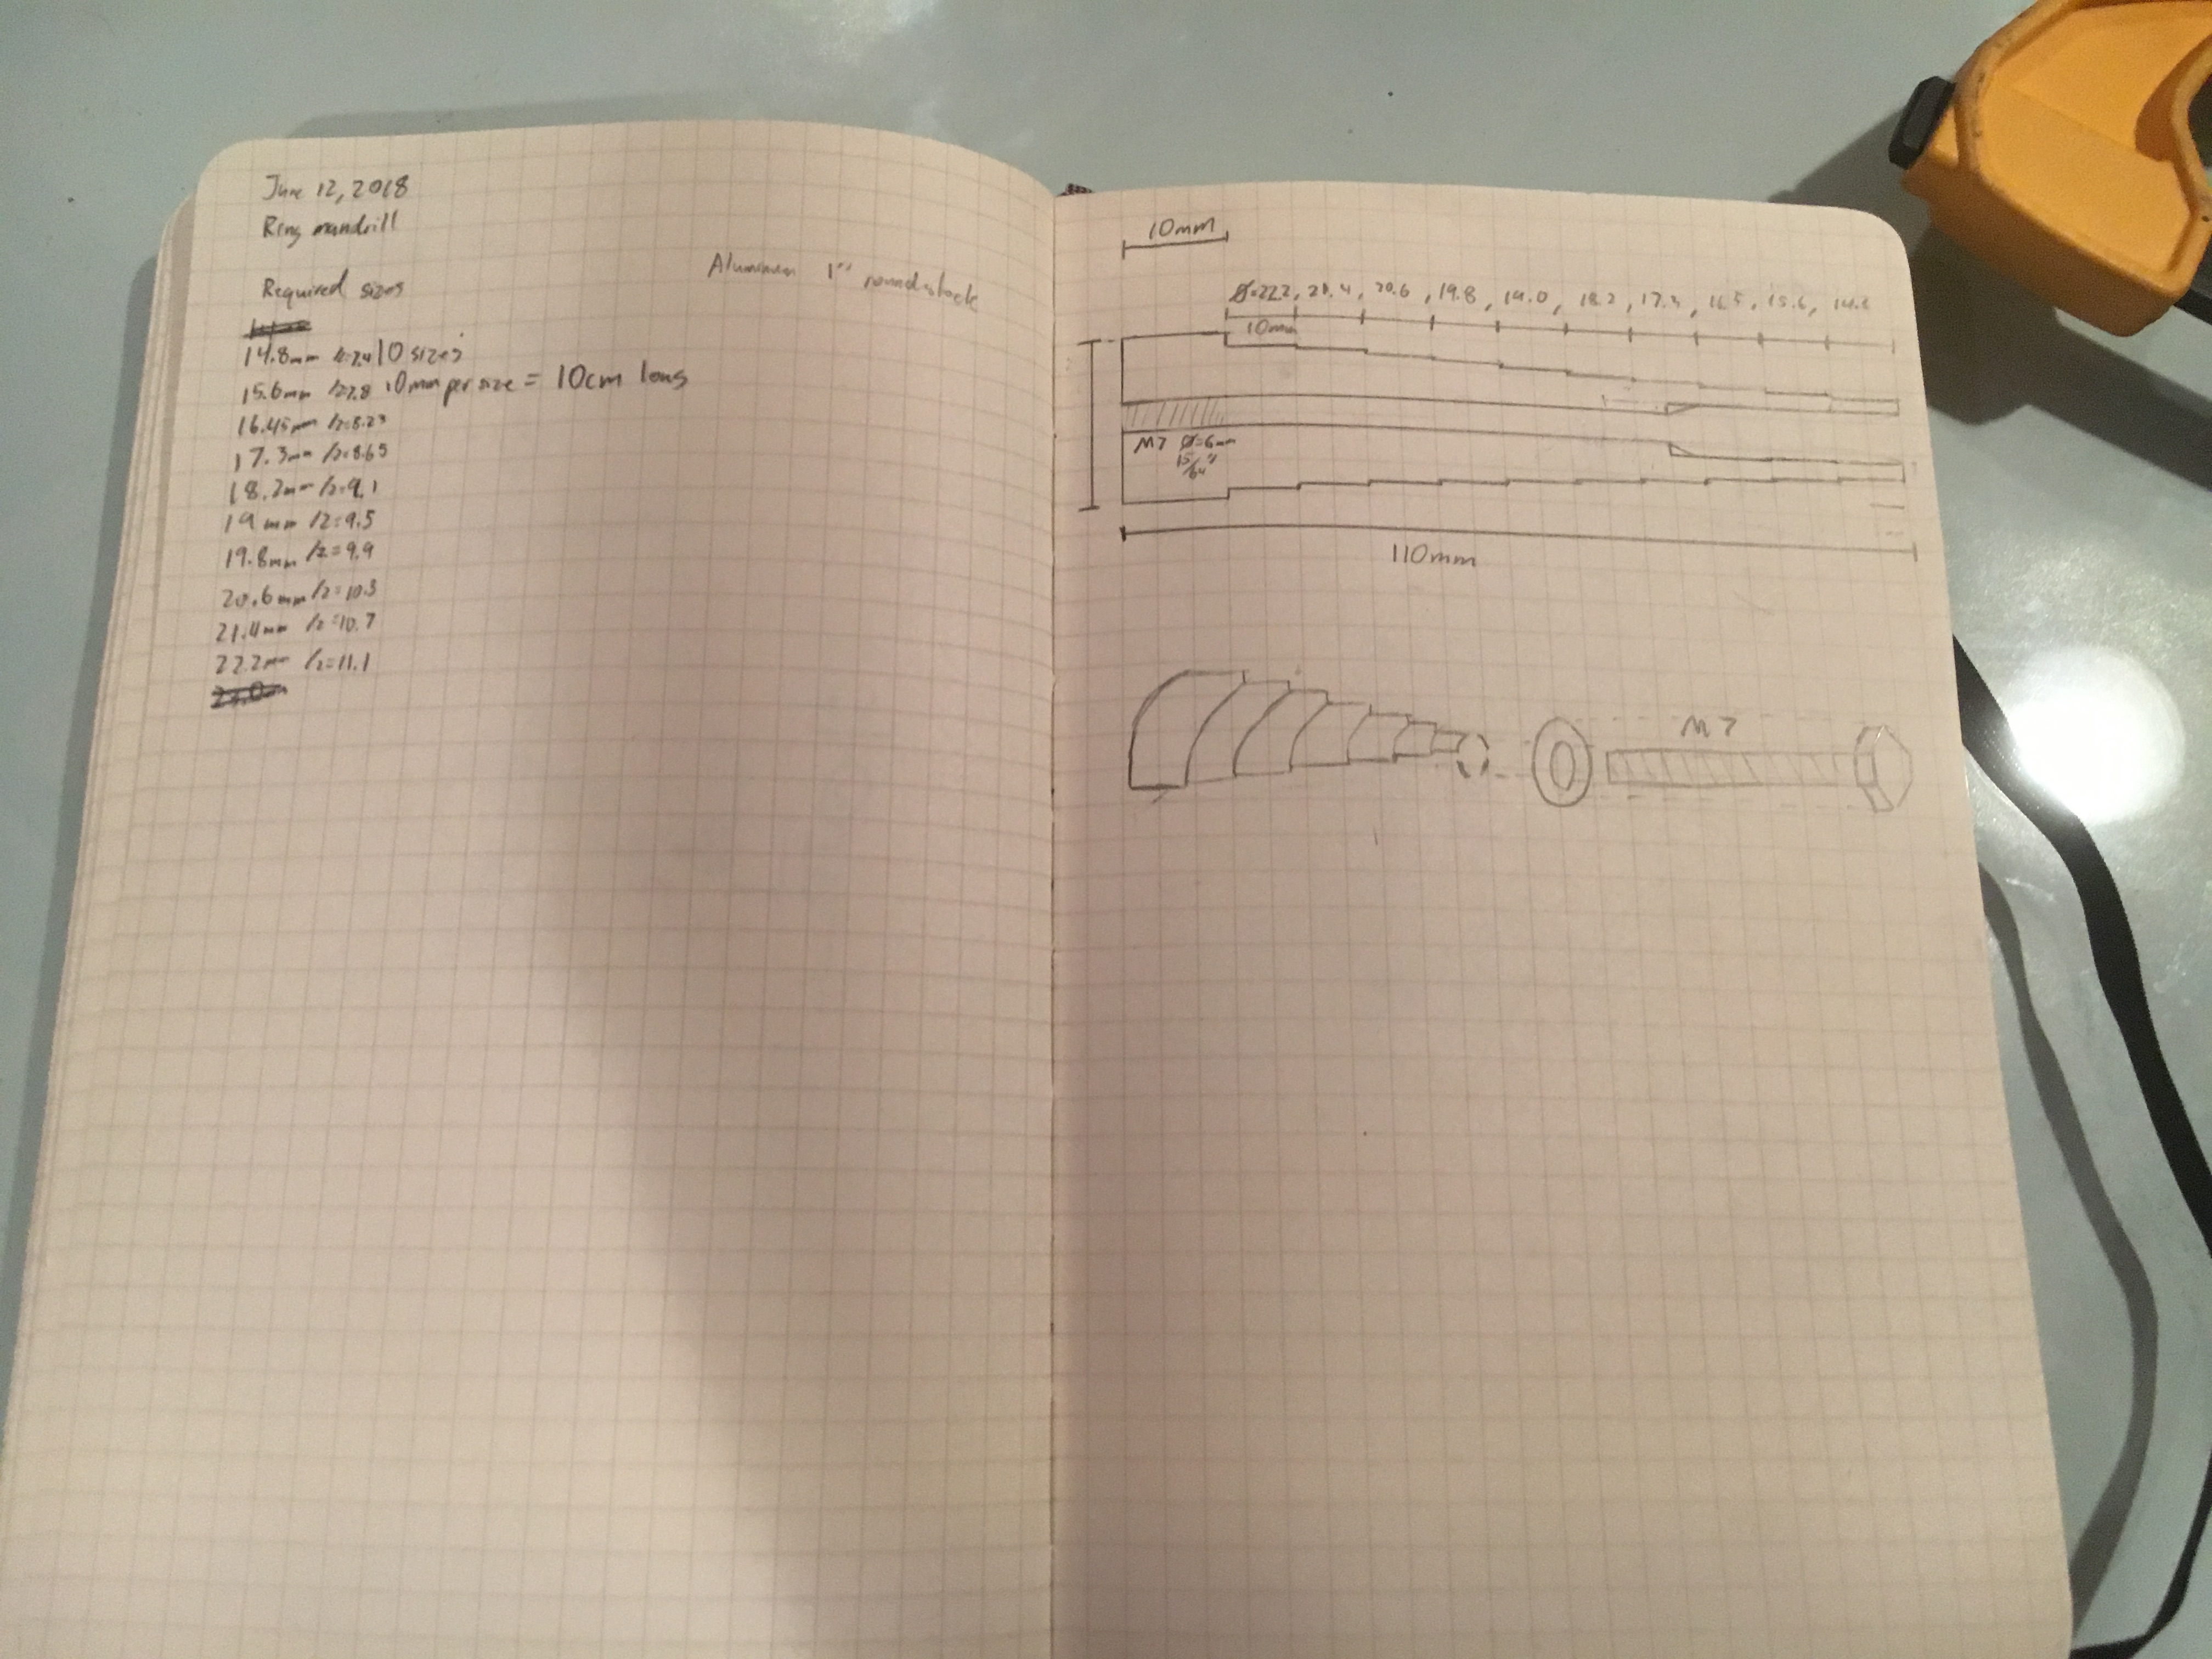 June 12, 2018
Ring mandrill
Aluminum 1" round stock
Required sizes
14.8mm /2=7.4 10 sizes
15.6mm /2=7.8 10mm per size = 10cm long
16.45mm /2=8.23
17.3mm /2=8.65
18.2mm /2=9.1
19mm /2=9.5
19.8mm /2=9.9
20.6mm /2=10.3
21.4mm /2=10.7
22.2mm /2=11.1
10mm
Ø=22.2, 21.4, 20.6, 19.8, 19.0, 18.2, 17.3, 16.5, 15.6, 14.8
10mm
M7 Ø=6mm
15/64"
110mm
M7